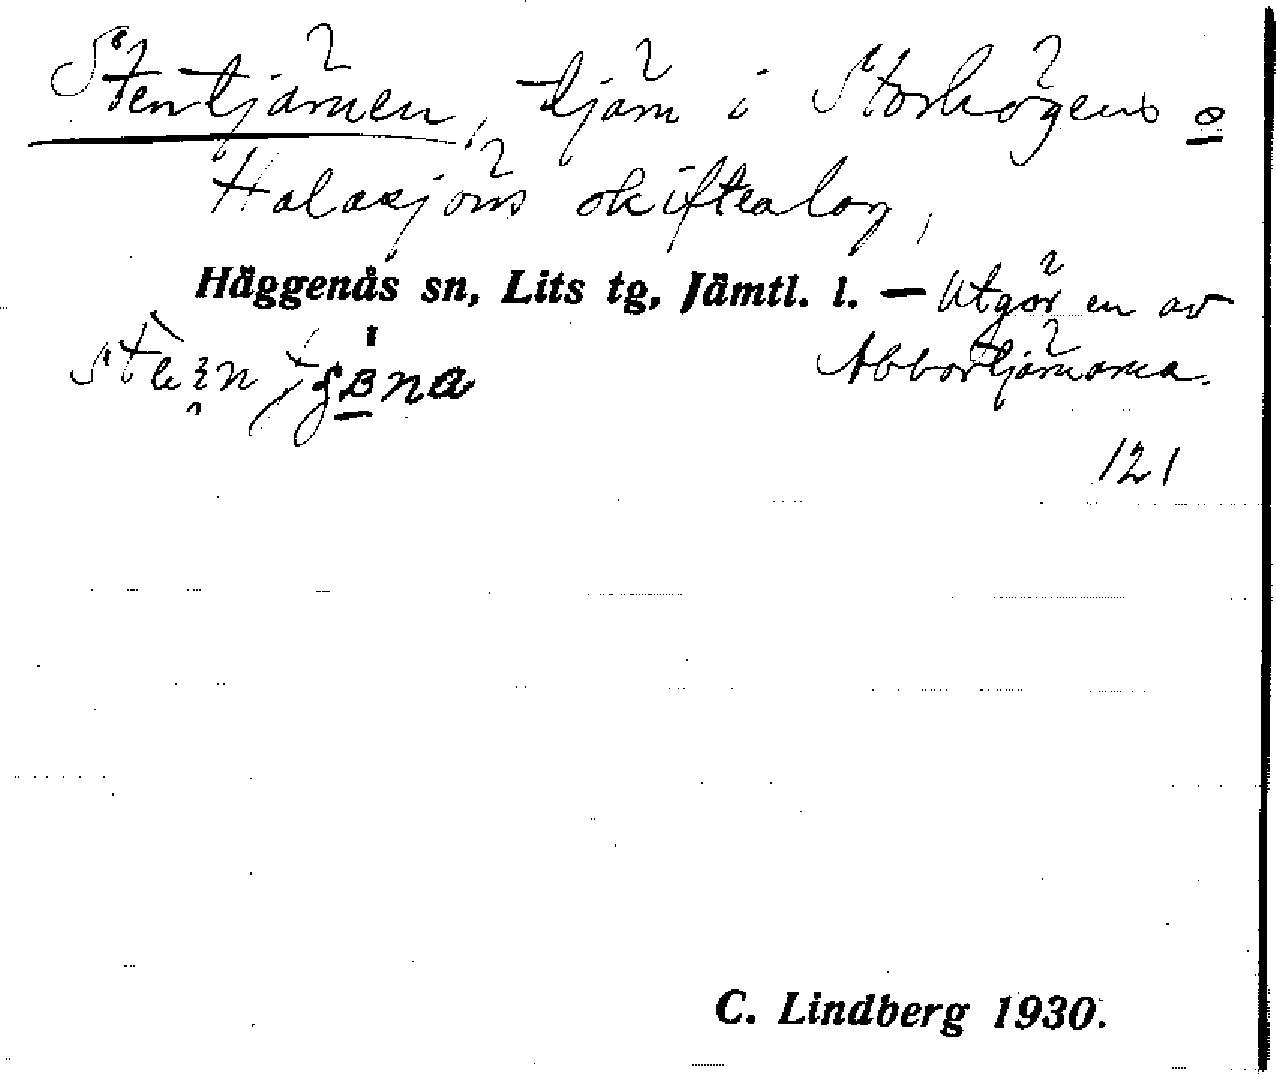 Stentjärnen, tjärn i Storhögens o
Halasjöns skifteslag,
Häggenås sn, Lits tg, Jämtl. l. — Utgör en av
Abbortjärnarna.
121
C. Lindberg 1930.